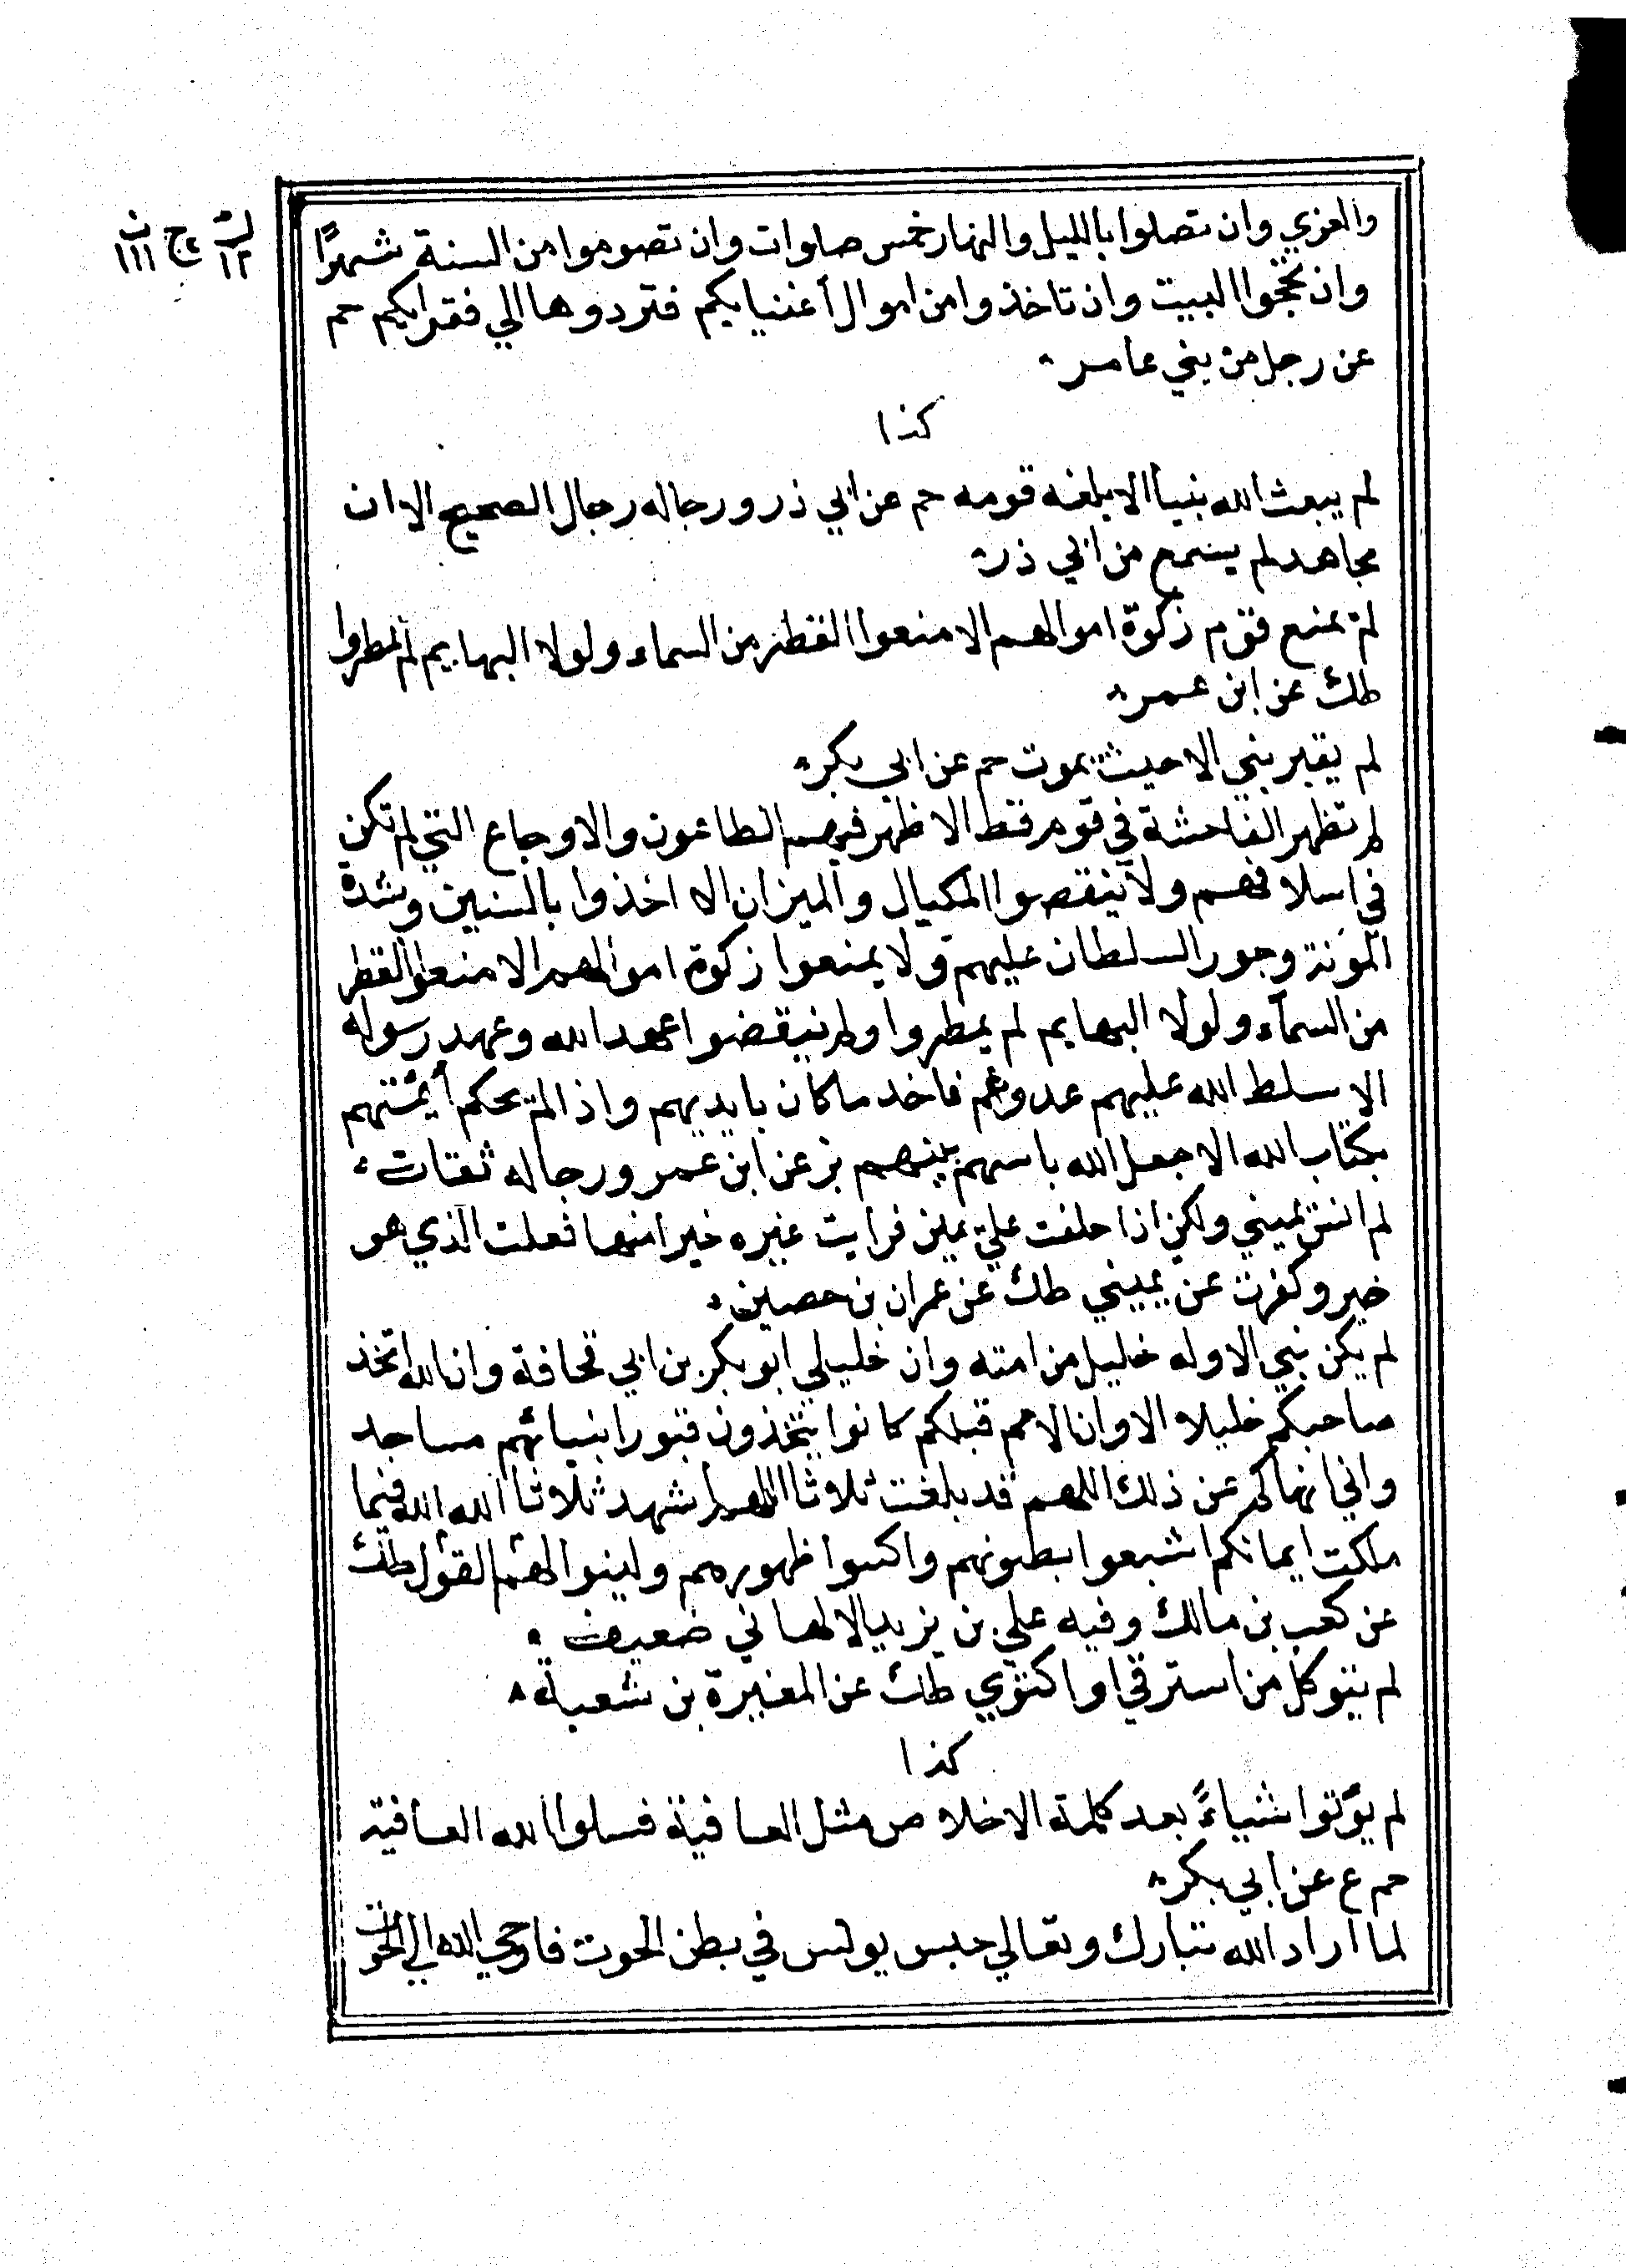 والعزي وان تصلوا بالليل والنهار خمس صلوات وان تصوموا من السنة شهرًا
وان تحجوا البيت وان تاخذوا من اموال أغنيايكم فتردوها الي فقرايكم حم
عن رجل من بني عامر
كذا
لم يبعث الله نبيا الا بلغه قومه حم عن ابي ذر ورجاله رجال الصحيح الا ان
مجاهد لم يسمع من ابي ذر
لم يمنع قوم زكوة اموالهم الا منعوا القطر من السماء ولولا البهايم لم يمطروا
طك عن ابن عمر
لم يقبر نبي الا حيث يموت حم عن ابي بكر
لم تظهر الفاحشة في قوم قط الا ظهر فيهم الطاعون والاوجاع التي لم تكن
في اسلافهم ولا ينقصوا المكيال والميزان الا اخذوا بالسنين وشدة
المونة وجور السلطان عليهم ولا يمنعوا زكوة اموالهم الا منعوا القطر
من السماء ولولا البهايم لم يمطروا ولم ينقضوا عهد الله وعهد رسوله
الا سلط الله عليهم عدوهم فاخد ما كان بايديهم واذا لم يحكم أيمتهم
بكتاب الله الا جعل الله باسهم بينهم بز عن ابن عمر ورجاله ثقات
لم انس يميني ولكن اذا حلفت علي يمين فرايت غيره خيرا منها فعلت الذي هو
خير وكفرت عن يميني طك عن عمران بن حصين
لم يكن نبي الا وله خليل من امته وان خليلي ابو بكر بن ابي قحافة وان الله اتخذ
صاحبكم خليلا الا وان الامم قبلكم كانوا يتخذون قبور انبيائهم مساجد
واني انهاكم عن ذلك اللهم قد بلغت ثلاثا اللهم اشهد ثلاثا الله الله فيما
ملكت ايمانكم اشبعوا بطونهم واكسوا ظهورهم ولينوا لهم القول طك
عن كعب بن مالك وفيه علي بن يزيد الالهاني ضعيف
لم يتوكل من استرقي او اكتوي طك عن المغيرة بن شعبة
كذا
لم يؤتوا شياءً بعد كلمة الاخلاص مثل العافية فسلوا الله العافية
حم ع عن ابي بكر
لما اراد الله تبارك وتعالي حبس يونس في بطن الحوت فاوحي الله الي الحوت